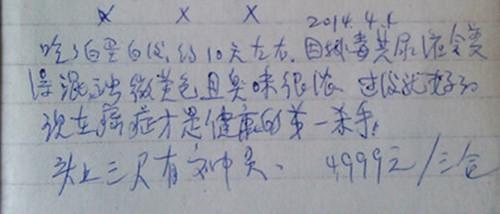 X X X 2014.4.1
吃了白蛋白后,约10天左右.因排毒其尿液会变
得混浊微黄色且臭味很浓 过后就好了
现在癌症才是健康的第一杀手。
头上三尺有神灵、 4999元/三仓